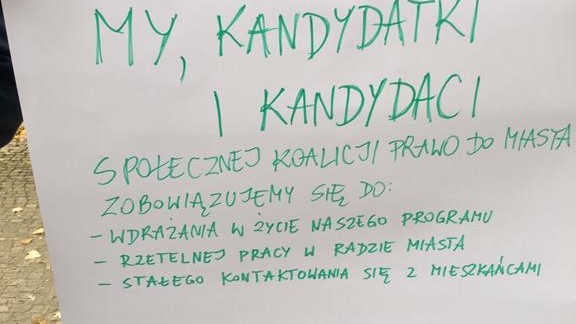 MY, KANDYDATKI
I KANDYDACI
SPOŁECZNEJ KOALICJI PRAWO DO MIASTA
ZOBOWIĄZUJEMY SIĘ DO:
- WDRAŻANIA W ŻYCIE NASZEGO PROGRAMU
- RZETELNEJ PRACY W RADZIE MIASTA
- STAŁEGO KONTAKTOWANIA SIĘ Z MIESZKAŃCAMI